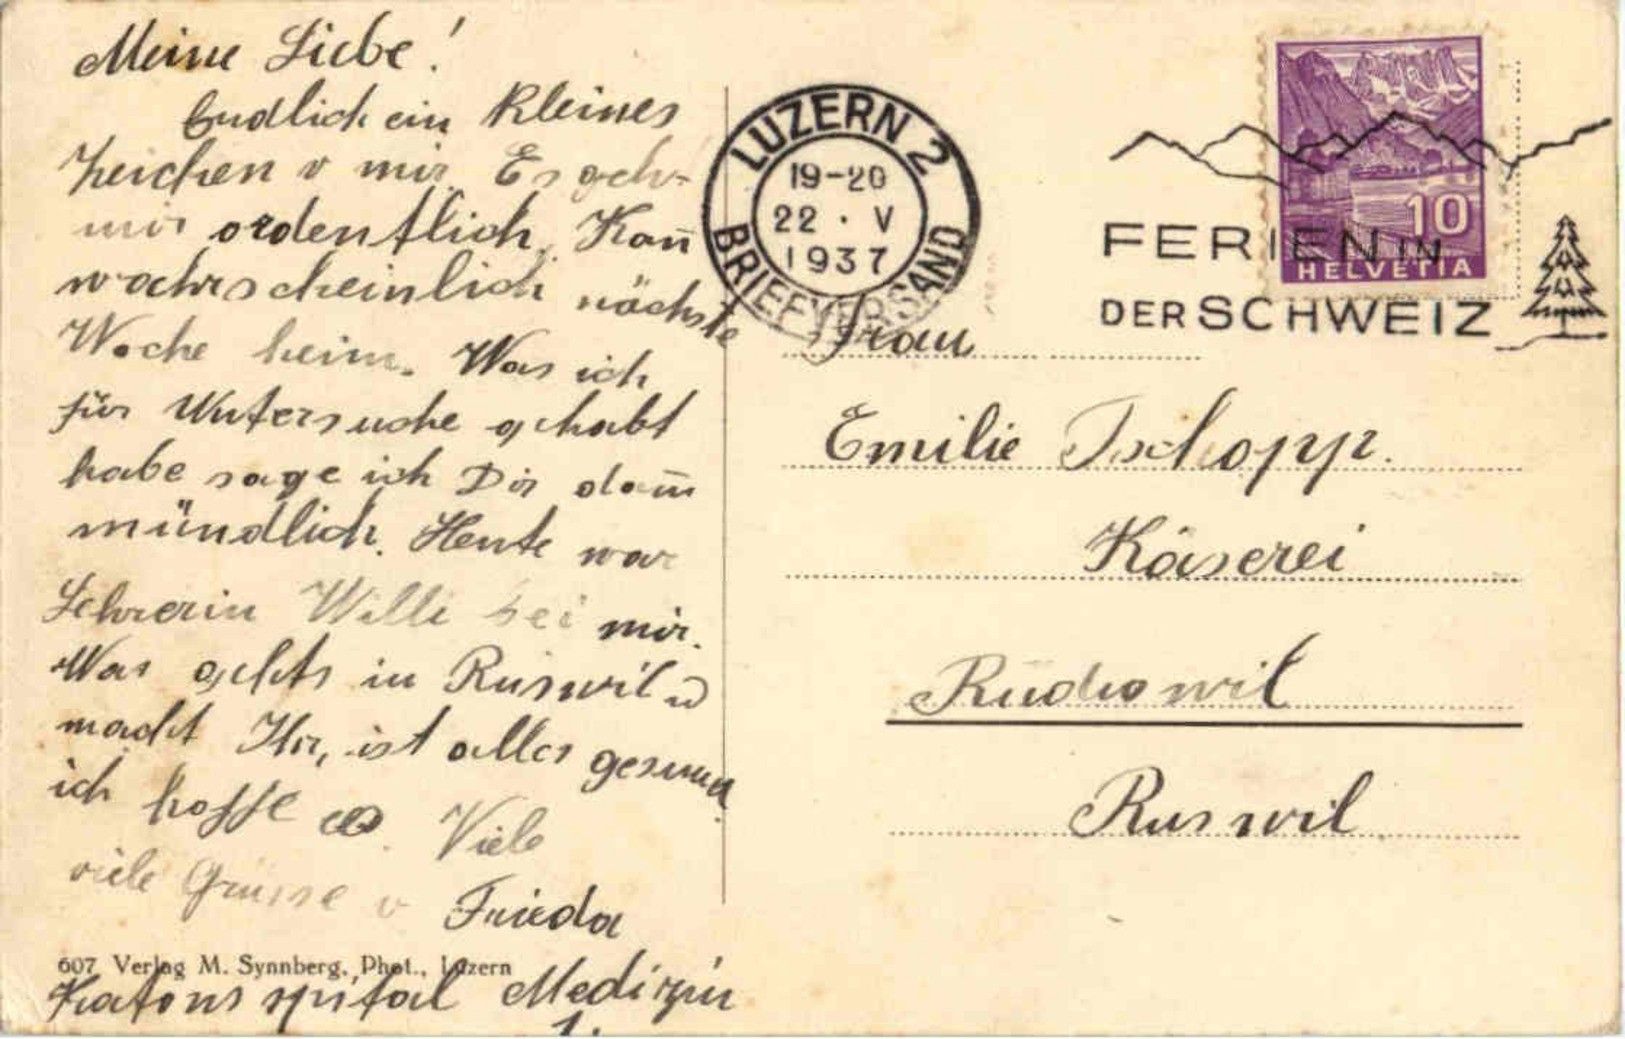 Meine Liebe!
Endlich ein kleines
Zeichen v mir. Es geht
mir ordentlich. Kan̄
wahrscheinlich nächste
Woche heim. Was ich
für Untersuche gehabt
habe sage ich Dir dan̄
mündlich. Heute war
Lehrerin Willi bei mir.
Was gehts in Ruswil u
macht Ihr, ist alles gesund
ich hoffe es. Viele
viele Grüsse v Frieda
607 Verlag M. Synnberg, Phot., Luzern
Katonsspital Medizin
1.
LUZERN 2
19-20
22 · V
1937
BRIEFVERSAND
10
HELVETIA
FERIEN IN
DER SCHWEIZ
Frau
Emilie Tschopp.
Käserei
Rüdiswil
Ruswil